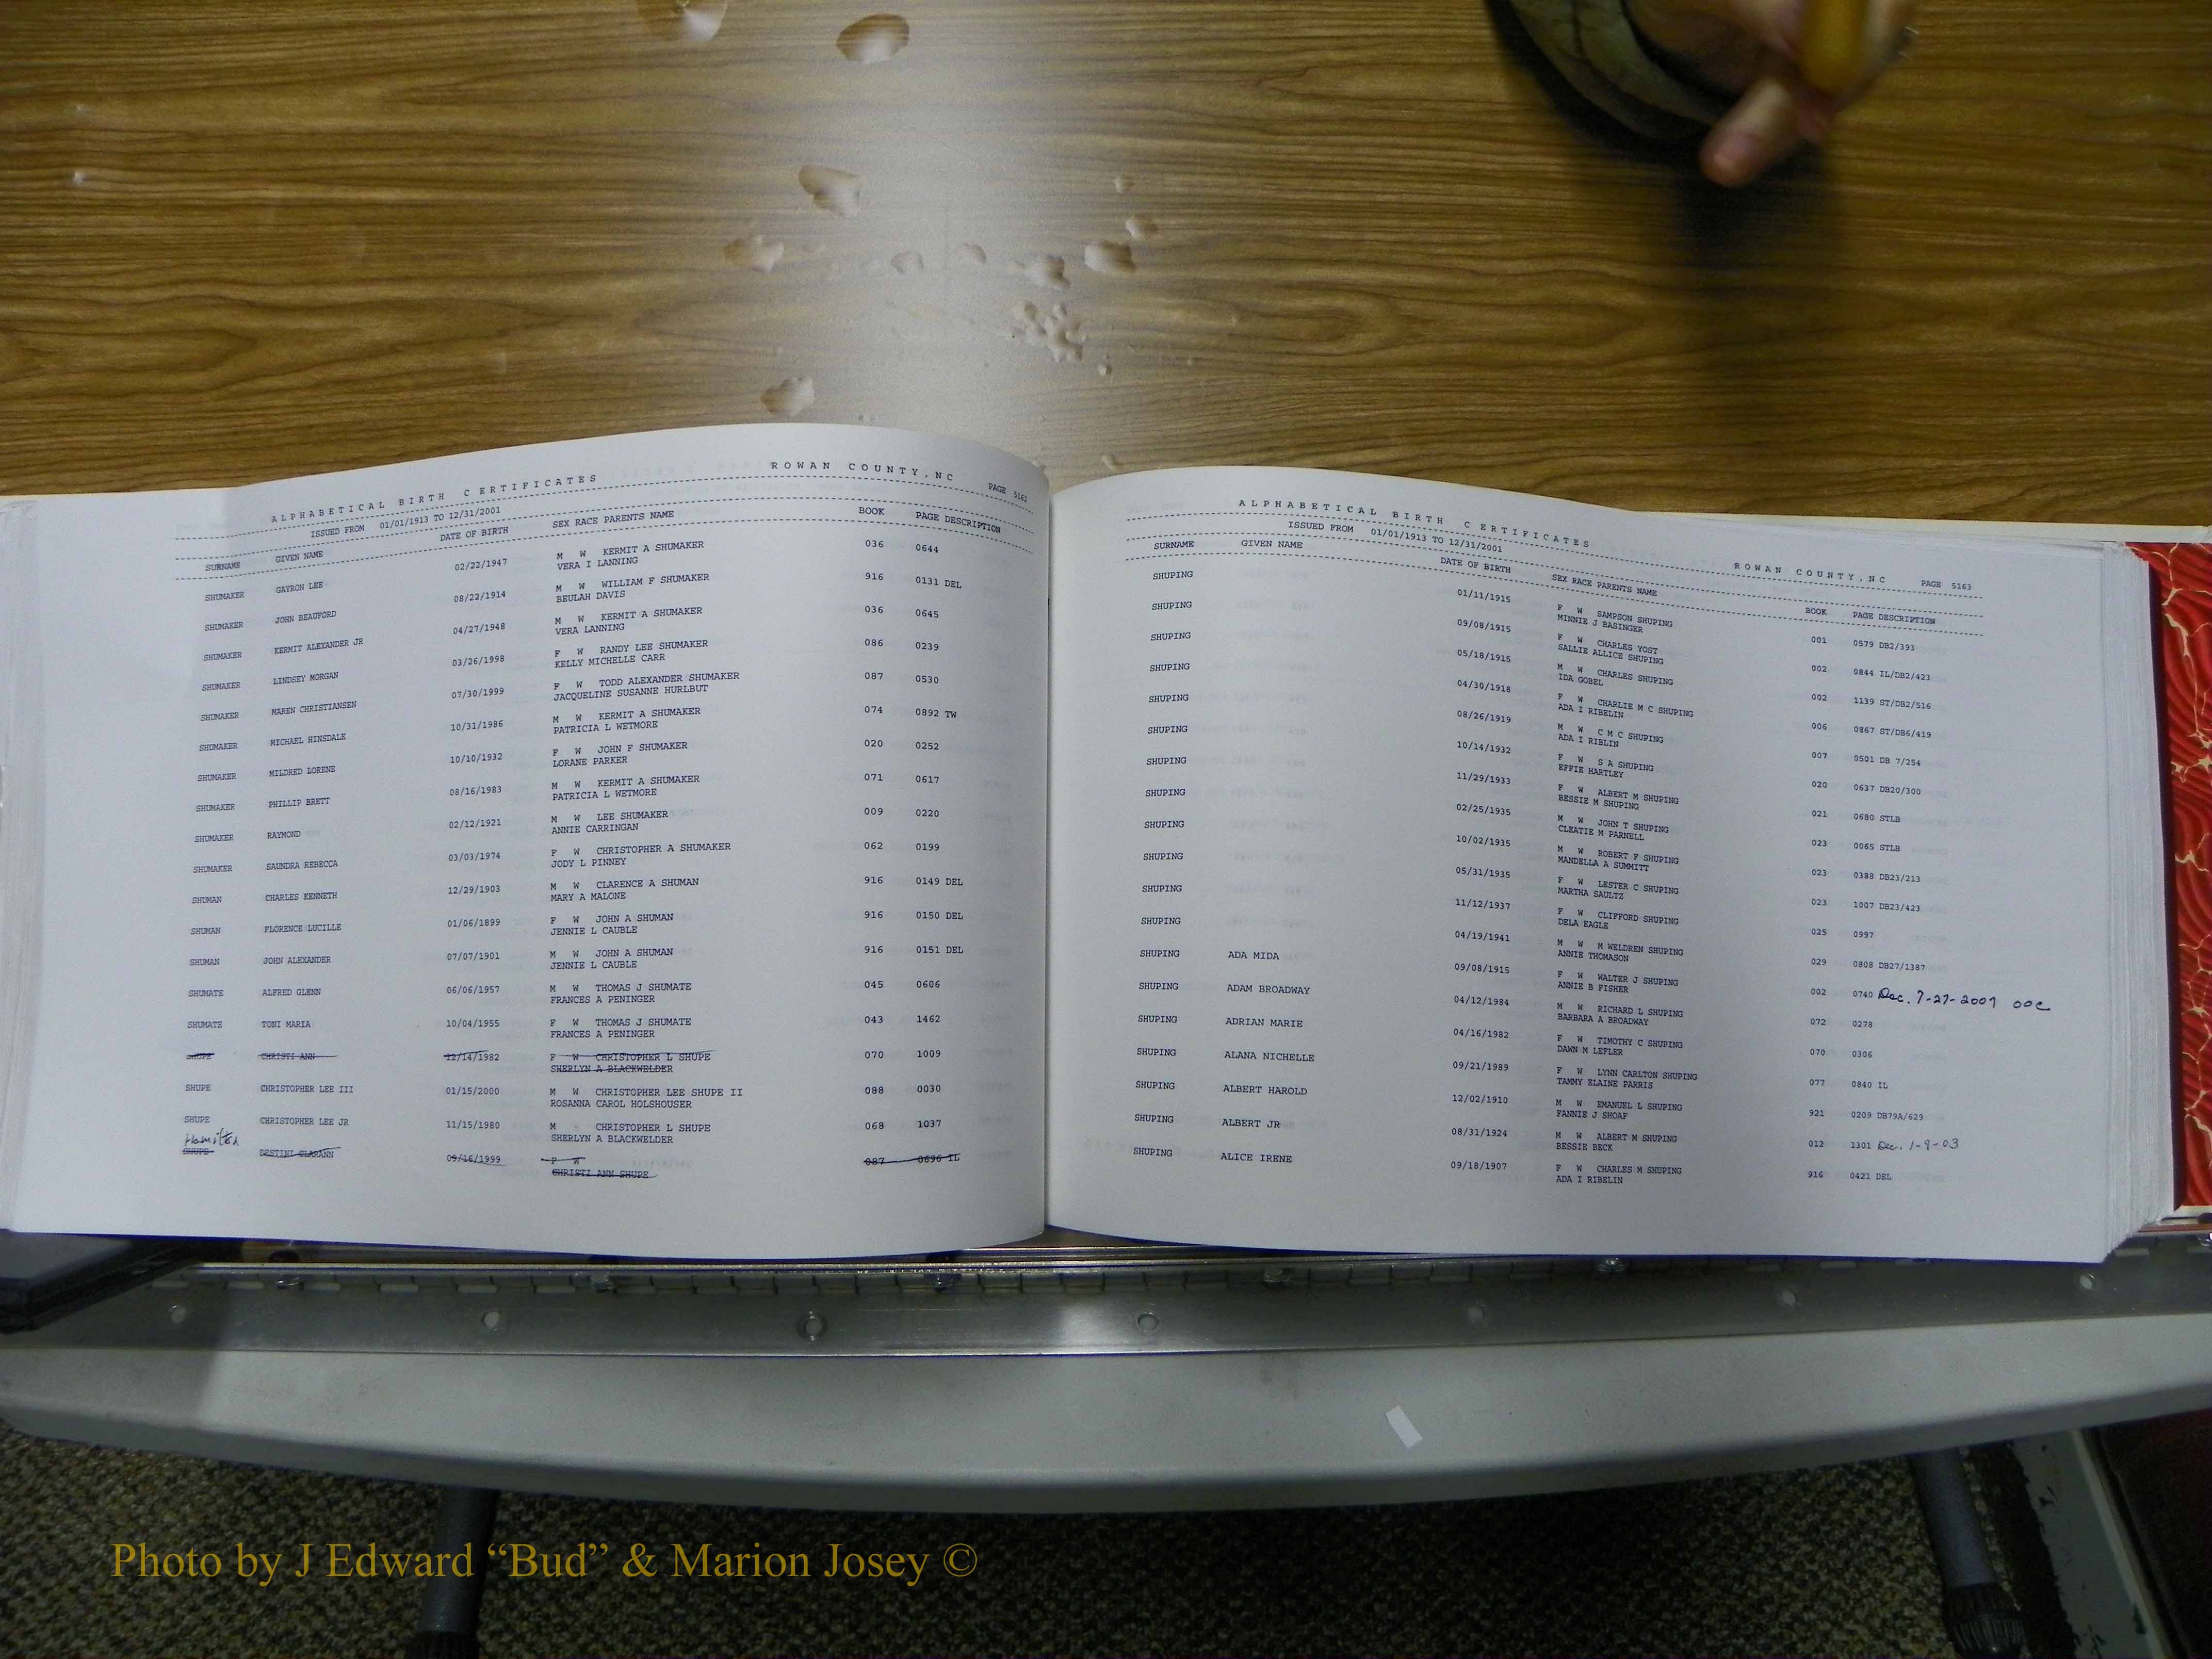 ALPHABETICAL BIRTH CERTIFICATES ROWAN COUNTY,NC PAGE 5162
ISSUED FROM 01/01/1913 TO 12/31/2001
SURNAME GIVEN NAME DATE OF BIRTH SEX RACE PARENTS NAME BOOK PAGE DESCRIPTION
SHUMAKER GAYRON LEE 02/22/1947 M W KERMIT A SHUMAKER 036 0644
VERA I LANNING
SHUMAKER JOHN BEAUFORD 08/22/1914 M W WILLIAM F SHUMAKER 916 0131 DEL
BEULAH DAVIS
SHUMAKER KERMIT ALEXANDER JR 04/27/1948 M W KERMIT A SHUMAKER 036 0645
VERA LANNING
SHUMAKER LINDSEY MORGAN 03/26/1998 F W RANDY LEE SHUMAKER 086 0239
KELLY MICHELLE CARR
SHUMAKER MAREN CHRISTIANSEN 07/30/1999 F W TODD ALEXANDER SHUMAKER 087 0530
JACQUELINE SUSANNE HURLBUT
SHUMAKER MICHAEL HINSDALE 10/31/1986 M W KERMIT A SHUMAKER 074 0892 TW
PATRICIA L WETMORE
SHUMAKER MILDRED LORENE 10/10/1932 F W JOHN F SHUMAKER 020 0252
LORANE PARKER
SHUMAKER PHILLIP BRETT 08/16/1983 M W KERMIT A SHUMAKER 071 0617
PATRICIA L WETMORE
SHUMAKER RAYMOND 02/12/1921 M W LEE SHUMAKER 009 0220
ANNIE CARRINGAN
SHUMAKER SAUNDRA REBECCA 03/03/1974 F W CHRISTOPHER A SHUMAKER 062 0199
JODY L PINNEY
SHUMAN CHARLES KENNETH 12/29/1903 M W CLARENCE A SHUMAN 916 0149 DEL
MARY A MALONE
SHUMAN FLORENCE LUCILLE 01/06/1899 F W JOHN A SHUMAN 916 0150 DEL
JENNIE L CAUBLE
SHUMAN JOHN ALEXANDER 07/07/1901 M W JOHN A SHUMAN 916 0151 DEL
JENNIE L CAUBLE
SHUMATE ALFRED GLENN 06/06/1957 M W THOMAS J SHUMATE 045 0606
FRANCES A PENINGER
SHUMATE TONI MARIA 10/04/1955 F W THOMAS J SHUMATE 043 1462
FRANCES A PENINGER
SHUPE CHRISTI ANN 12/14/1982 F W CHRISTOPHER L SHUPE 070 1009
SHERLYN A BLACKWELDER
SHUPE CHRISTOPHER LEE III 01/15/2000 M W CHRISTOPHER LEE SHUPE II 088 0030
ROSANNA CAROL HOLSHOUSER
SHUPE CHRISTOPHER LEE JR 11/15/1980 M CHRISTOPHER L SHUPE 068 1037
SHERLYN A BLACKWELDER
Hamilton
SHUPE DESTINI CLARANN 09/16/1999 F W 087 0696 IL
CHRISTI ANN SHUPE
ALPHABETICAL BIRTH CERTIFICATES ROWAN COUNTY,NC PAGE 5163
ISSUED FROM 01/01/1913 TO 12/31/2001
SURNAME GIVEN NAME DATE OF BIRTH SEX RACE PARENTS NAME BOOK PAGE DESCRIPTION
SHUPING 01/11/1915 F W SAMPSON SHUPING 001 0579 DB2/393
MINNIE J BASINGER
SHUPING 09/08/1915 F W CHARLES YOST 002 0844 IL/DB2/423
SALLIE ALLICE SHUPING
SHUPING 05/18/1915 M W CHARLES SHUPING 002 1139 ST/DB2/516
IDA GOBEL
SHUPING 04/30/1918 F W CHARLIE M C SHUPING 006 0867 ST/DB6/419
ADA I RIBELIN
SHUPING 08/26/1919 M W C M C SHUPING 007 0501 DB 7/254
ADA I RIBLIN
SHUPING 10/14/1932 F W S A SHUPING 020 0637 DB20/300
EFFIE HARTLEY
SHUPING 11/29/1933 F W ALBERT M SHUPING 021 0680 STLB
BESSIE M SHUPING
SHUPING 02/25/1935 M W JOHN T SHUPING 023 0065 STLB
CLEATIE M PARNELL
SHUPING 10/02/1935 M W ROBERT F SHUPING 023 0388 DB23/213
MANDELLA A SUMMITT
SHUPING 05/31/1935 F W LESTER C SHUPING 023 1007 DB23/423
MARTHA SAULTZ
SHUPING 11/12/1937 F W CLIFFORD SHUPING 025 0997
DELA EAGLE
SHUPING 04/19/1941 M W M WELDREN SHUPING 029 0808 DB27/1387
ANNIE THOMASON
SHUPING ADA MIDA 09/08/1915 F W WALTER J SHUPING 002 0740 Dec. 7-27-2007 OOC
ANNIE B FISHER
SHUPING ADAM BROADWAY 04/12/1984 M W RICHARD L SHUPING 072 0278
BARBARA A BROADWAY
SHUPING ADRIAN MARIE 04/16/1982 F W TIMOTHY C SHUPING 070 0306
DAWN M LEFLER
SHUPING ALANA NICHELLE 09/21/1989 F W LYNN CARLTON SHUPING 077 0840 IL
TAMMY ELAINE PARRIS
SHUPING ALBERT HAROLD 12/02/1910 M W EMANUEL L SHUPING 921 0209 DB79A/629
FANNIE J SHOAF
SHUPING ALBERT JR 08/31/1924 M W ALBERT M SHUPING 012 1301 Dec. 1-9-03
BESSIE BECK
SHUPING ALICE IRENE 09/18/1907 F W CHARLES M SHUPING 916 0421 DEL
ADA I RIBELIN
Photo by J Edward “Bud” & Marion Josey ©